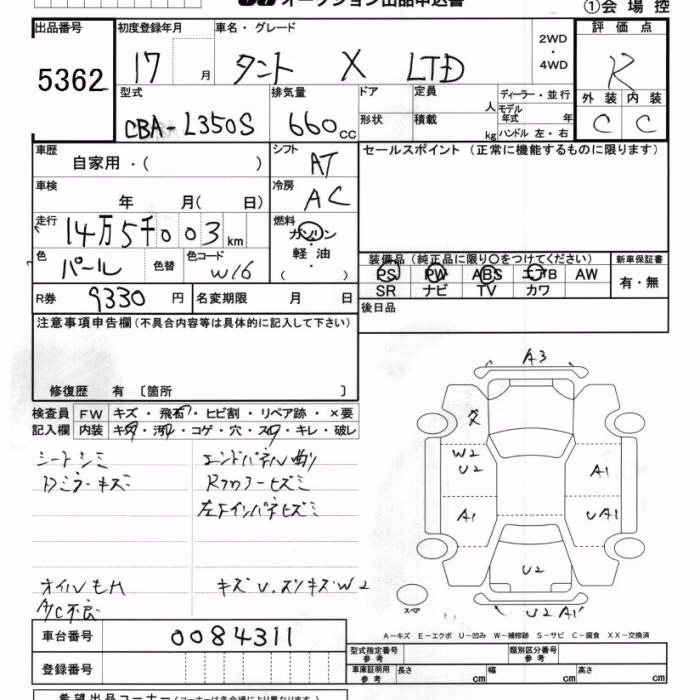 オークション出品申込書
①会場控
出品番号 初度登録年月 車名・グレード 2WD・4WD 評価点
5362 17 月 タント X LTD R
型式 排気量 ドア 定員 人 ディーラー・並行 外装 内装
CBA-L350S 660cc 形状 積載 kg モデル年式 年 C C
ハンドル 左・右
車歴 自家用・( ) シフト AT セールスポイント (正常に機能するものに限ります)
車検 年 月( 日) 冷房 AC
走行 14万5千003km 燃料 ガソリン・軽油・( )
色 パール 色替 色コード W16
装備品 (純正品に限り○をつけてください) 新車保証書
PS PW ABS エアB AW 有・無
SR ナビ TV カワ
R券 9330円 名変期限 月 日 後日品
注意事項申告欄 (不具合内容等は具体的に記入して下さい)
修復歴 有 〔箇所 〕
検査員 FW キズ・飛石・ヒビ割・リペア跡・×要
記入欄 内装 キズ・汚れ・コゲ・穴・スレ・キレ・破レ
シートシミ エンドパネル曲り
Dミラーキズ Rフロアーヒズミ
左下インパネヒズミ
オイルモレ キズU.スリキズW2
A/C不良
A3
W2
U2 A1
A1 UA1
U2
スペア U2 A1
A-キズ E-エクボ U-凹み W-補修跡 S-サビ C-腐食 XX-交換済
車台番号 0084311
型式指定番号 参考 類別区分番号 参考
登録番号 車庫証明用 参考 長さ cm 幅 cm 高さ cm
希望出品コーナー